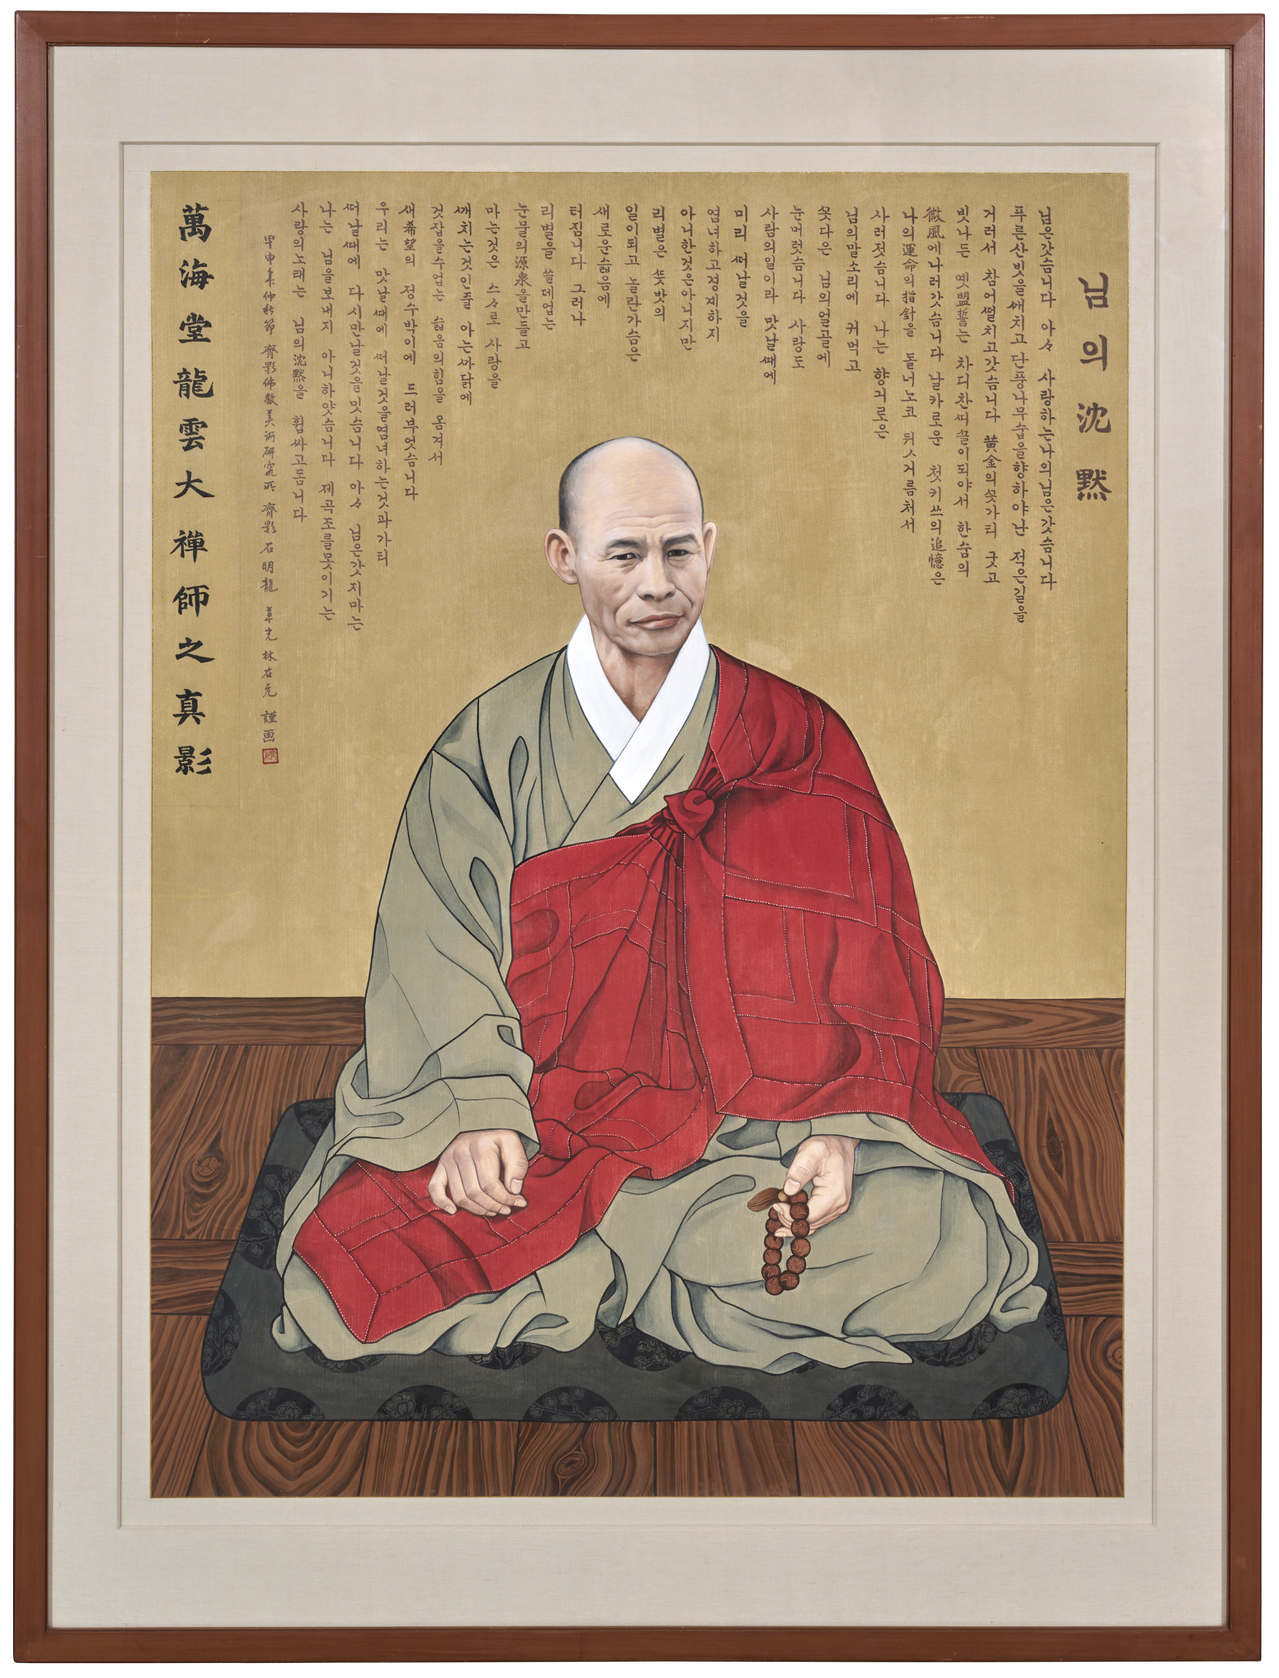 님의 沈黙
님은갓슴니다 아々 사랑하는나의님은갓슴니다
푸른산빗을ᄭᅢ치고 단풍나무숩을향하야난 적은길을
거러서 참어ᄯᅥᆯ치고갓슴니다 黃金의ᄭᅩᆺ가티 굿고
빗나든 옛盟誓는 차디찬ᄯᅵᄭᅳᆯ이되야서 한숨의
微風에나러갓슴니다 날카로운 첫키쓰의追憶은
나의運命의指針을 돌너노코 뒤ㅅ거름처서
사러젓슴니다 나는 향긔로은
님의말소리에 귀먹고
ᄭᅩᆺ다은 님의얼골에
눈머럿슴니다 사랑도
사람의일이라 맛날ᄯᅢ에
미리 ᄯᅥ날것을
염녀하고경계하지
아니한것은아니지만
리별은 ᄯᅳᆺ밧의
일이되고 놀란가슴은
새로운슯음에
터짐니다 그러나
리별을 쓸데업는
눈물의源泉을만들고
마는것은 스々로 사랑을
ᄭᅢ치는것인줄 아는ᄭᅡ닭에
것잡을수업는 슯음의힘을 옴겨서
새希望의 정수박이에 드러부엇슴니다
우리는 맛날ᄯᅢ에 ᄯᅥ날것을염녀하는것과가티
ᄯᅥ날ᄯᅢ에 다시만날것을밋슴니다 아々 님은갓지마는
나는 님을보내지 아니하얏슴니다 제곡조를못이기는
사랑의노래는 님의沈黙을 휩싸고돔니다
甲申年仲秋節 齊影佛敎美術硏究所 齊影 石明龍 草光 林在元 謹画
萬海堂龍雲大禪師之真影